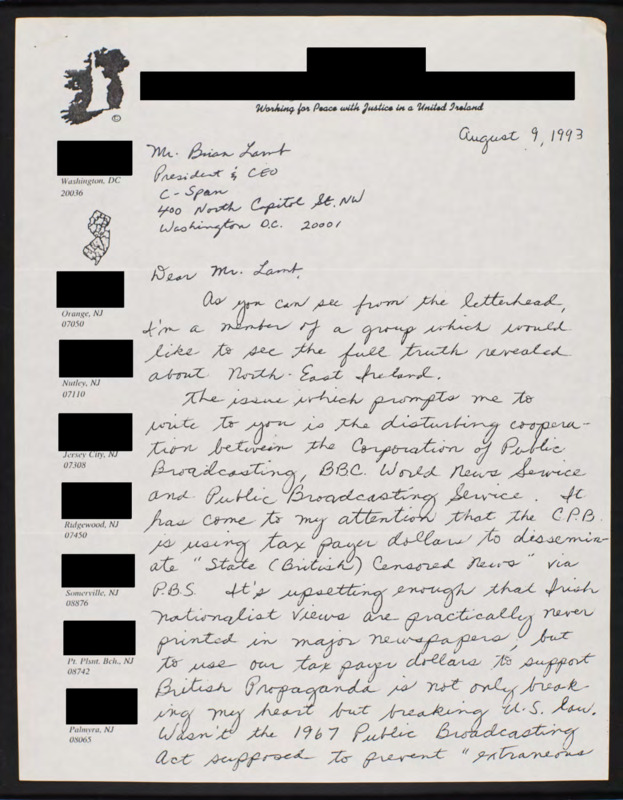 ©
Working for Peace with Justice in a United Ireland
August 9, 1993
Washington, DC
20036
Orange, NJ
07050
Nutley, NJ
07110
Jersey City, NJ
07308
Ridgewood, NJ
07450
Somerville, NJ
08876
Pt. Plsnt. Bch., NJ
08742
Palmyra, NJ
08065
Mr. Brian Lamb
President & CEO
C-Span
400 North Capitol St. NW
Washington D.C. 20001
Dear Mr. Lamb,
As you can see from the letterhead,
I'm a member of a group which would
like to see the full truth revealed
about North-East Ireland.
The issue which prompts me to
write to you is the disturbing coopera-
tion between the Corporation of Public
Broadcasting, BBC. World News Service
and Public Broadcasting Service. It
has come to my attention that the C.P.B.
is using tax payer dollars to dissemin-
ate "State (British) Censored News" via
P.B.S. It's upsetting enough that Irish
nationalist views are practically never
printed in major newspapers, but
to use our tax payer dollars to support
British Propaganda is not only break-
ing my heart but breaking U.S. law.
Wasn't the 1967 Public Broadcasting
Act supposed to prevent "extraneous